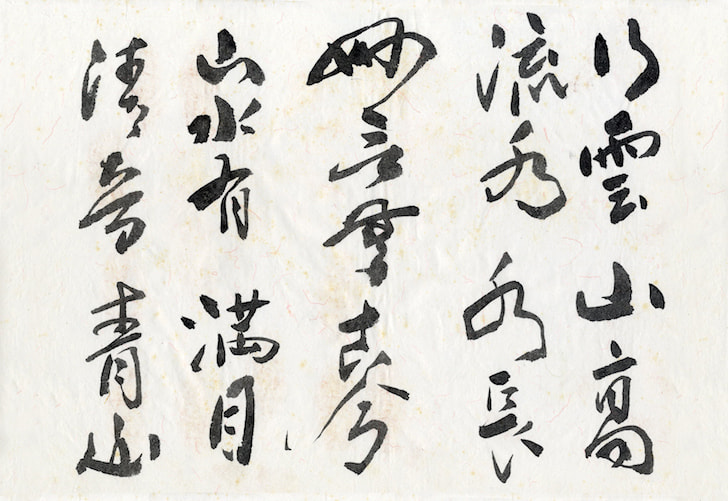 行雲 山高
流水 水長
妙 古今
山水有 満目
清音 青山